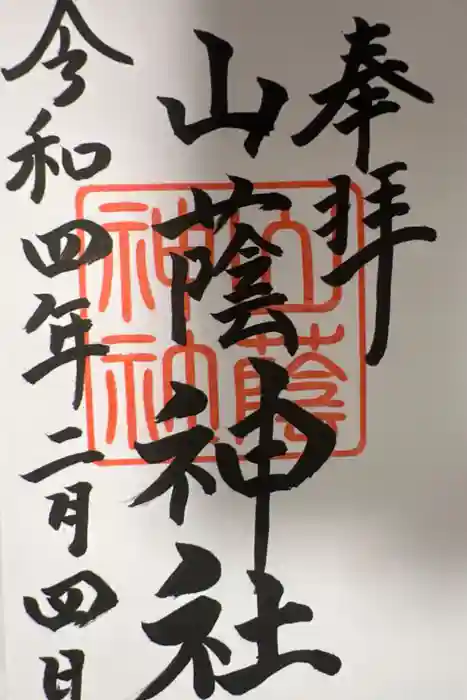 奉拝
山蔭神社
令和四年二月四日
山蔭神社